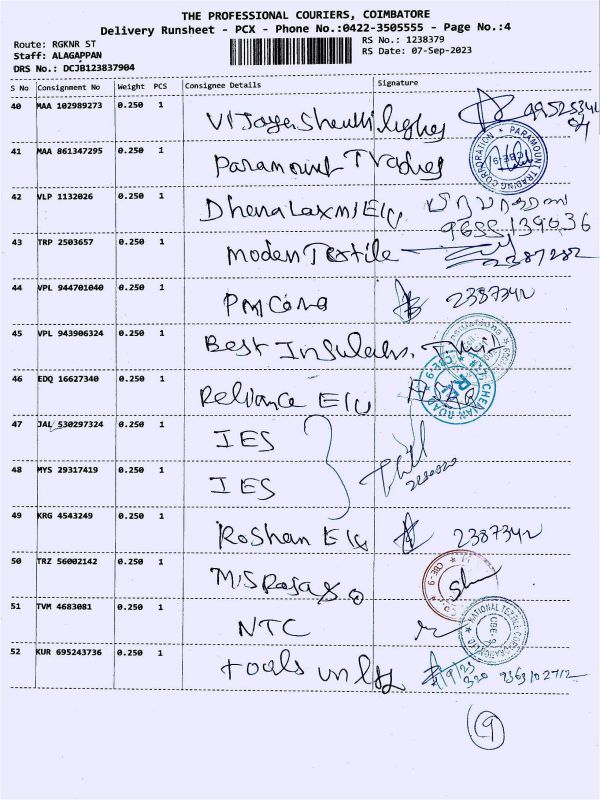 THE PROFESSIONAL COURIERS, COIMBATORE
Delivery Runsheet - PCX - Phone No.:0422-3505555 - Page No.:4
Route: RGKNR ST
RS No.: 1238379
Staff: ALAGAPPAN
RS Date: 07-Sep-2023
DRS No.: DCJB123837904
S No Consignment No Weight PCS Consignee Details Signature
40 MAA 102989273 0.250 1
41 MAA 861347295 0.250 1 Paramount Trades
PARAMOUNT TRADING CORPORATION CBE-9
42 VLP 1132026 0.250 1 Dhanalaxmi E/c
9655139636
43 TRP 2503657 0.250 1 Moden Textile 2387282
44 VPL 944701040 0.250 1 2387342
45 VPL 943906324 0.250 1 Best
46 EDQ 16627340 0.250 1 Reliance E/c
CBE-9
47 JAL 530297324 0.250 1 IES
48 MYS 29317419 0.250 1 IES
49 KRG 4543249 0.250 1 Roshan E/c 2387342
50 TRZ 56002142 0.250 1 M/S
CBE-9
51 TVM 4683081 0.250 1 NTC
NATIONAL TEXTILE CORPORATION CBE-9
52 KUR 695243736 0.250 1 tools
9